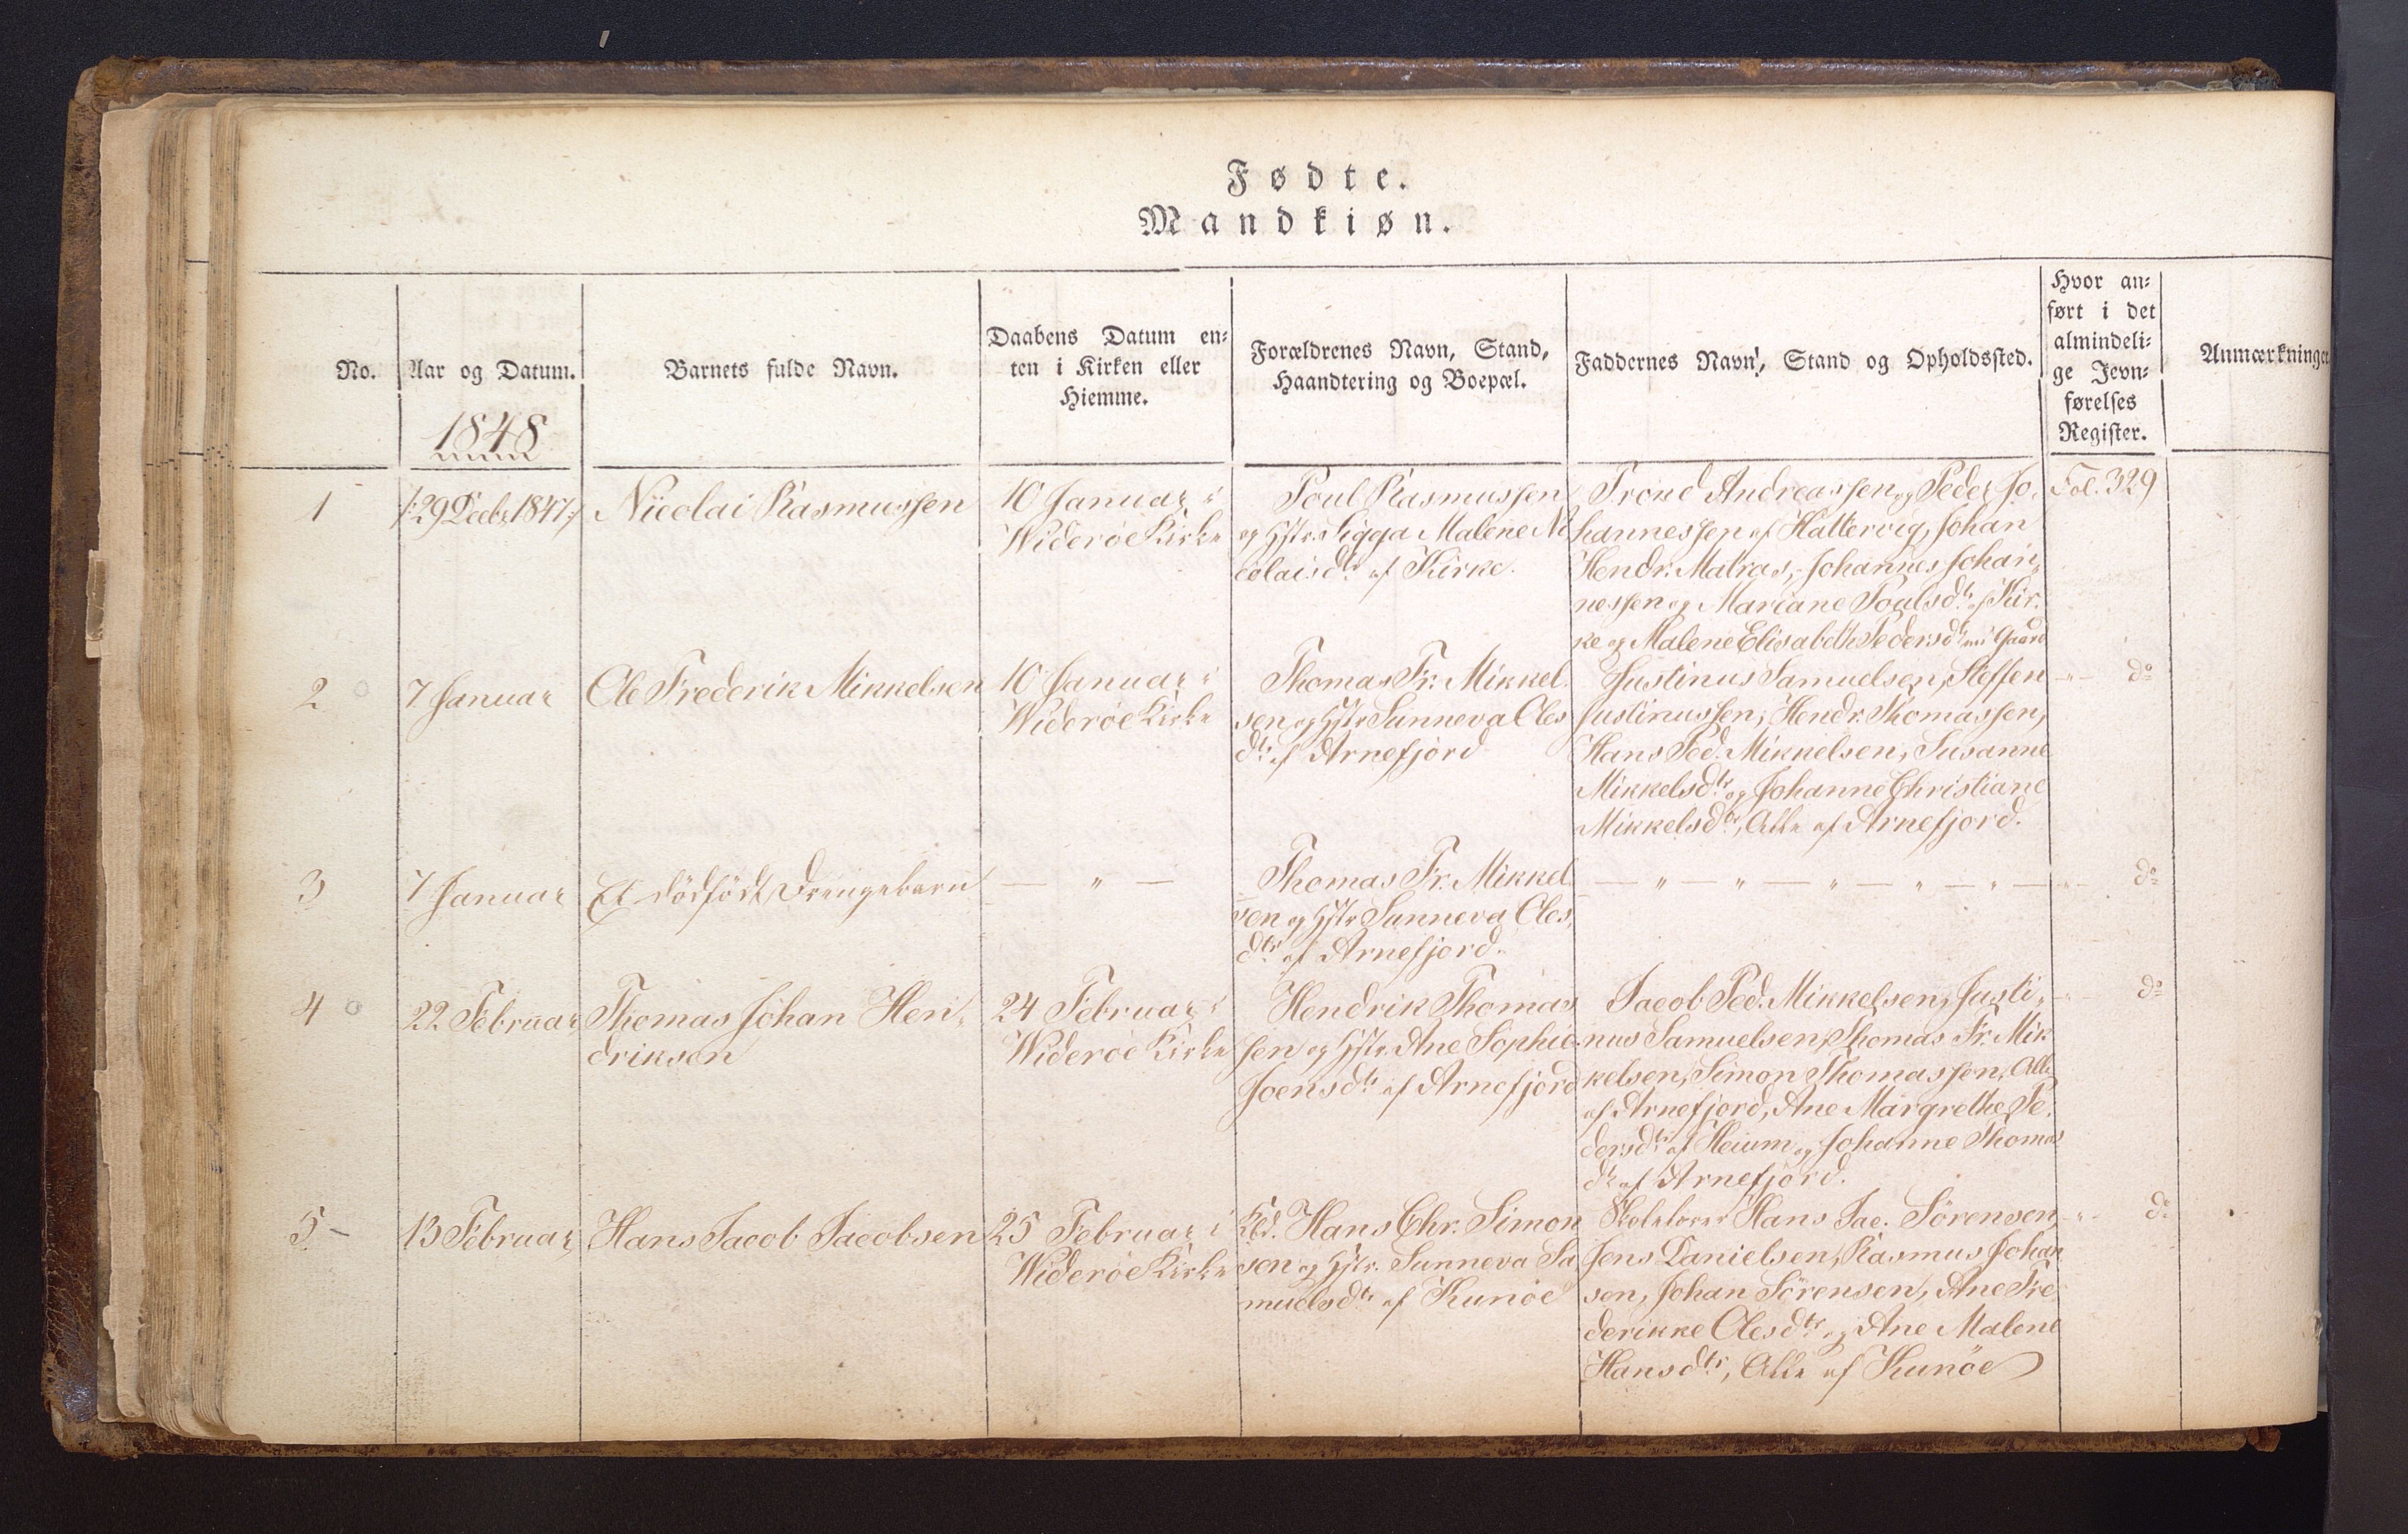 Fødte.
Mandkiøn.
No.
Aar og Datum.
1848
Barnets fulde Navn.
Daabens Datum en-
ten i Kirken eller
Hiemme.
Forældrenes Navn, Stand,
Haandtering og Boepæl.
Faddernes Navn, Stand og Opholdssted.
Hvor an-
ført i det
almindeli-
ge Jevn-
førelses
Register.
Anmærkninger
1
/:29 Decbr 1847:/
Nicolai Rasmussen
10 Januar i
Widerøe Kirke
Poul Rasmussen
og Hstr Sigga Malene Ni
colaisdtr af Kirke.
Trond Andreassen og Peder Jo-
hannessen af Hattervig, Johan
Hendr. Matras, Johannes Johan-
nessen og Mariane Poulsdtr af Kir-
ke og Malene Elisabeth Pedersdtr Gaard
Fol. 329
2
7 Januar
Ole Frederik Mikkelsen
10 Januar i
Widerøe Kirke
Thomas Fr. Mikkel-
sen og Hstr Sunneva Oles
dtr af Arnefjord
Justinus Samuelsen, Steffen
Justinussen, Hendr. Thomassen,
Hans Ped. Mikkelsen, Susanne
Mikkelsdtr og Johanne Christiane
Mikkelsdtr, Alle af Arnefjord.
— " — do
3
7 Januar
Et dödfödt Drengebarn
— " —
Thomas Fr. Mikkel-
sen og Hstr Sunneva Oles-
dtr af Arnefjord.
— " — " — " — " — " —
— " — do
4
22 Februar
Thomas Johan Hen-
driksen
24 Februar i
Widerøe Kirke
Hendrik Thomas
sen og Hstr. Ane Sophie
Joensdtr af Arnefjord
Jacob Ped. Mikkelsen, Justi-
nus Samuelsen, Thomas Fr. Mik
kelsen, Simon Thomassen, Alle
af Arnefjord, Ane Margrethe Pe-
dersdtr af Heium og Johanne Thomas
dtr af Arnefjord.
— " — do
5 –
13 Februar
Hans Jacob Jacobsen
25 Februar i
Widerøe Kirke
Hans Chr. Simon
sen og Hstr. Sunneva Sa
muelsdtr af Kunöe
Hans Jac. Sörensen,
Jens Danielsen, Rasmus Johan
sen, Johan Sörensen, Ane Fre
derikke Olesdtr og Ane Malene
Hansdtr, Alle af Kunöe
— " — do